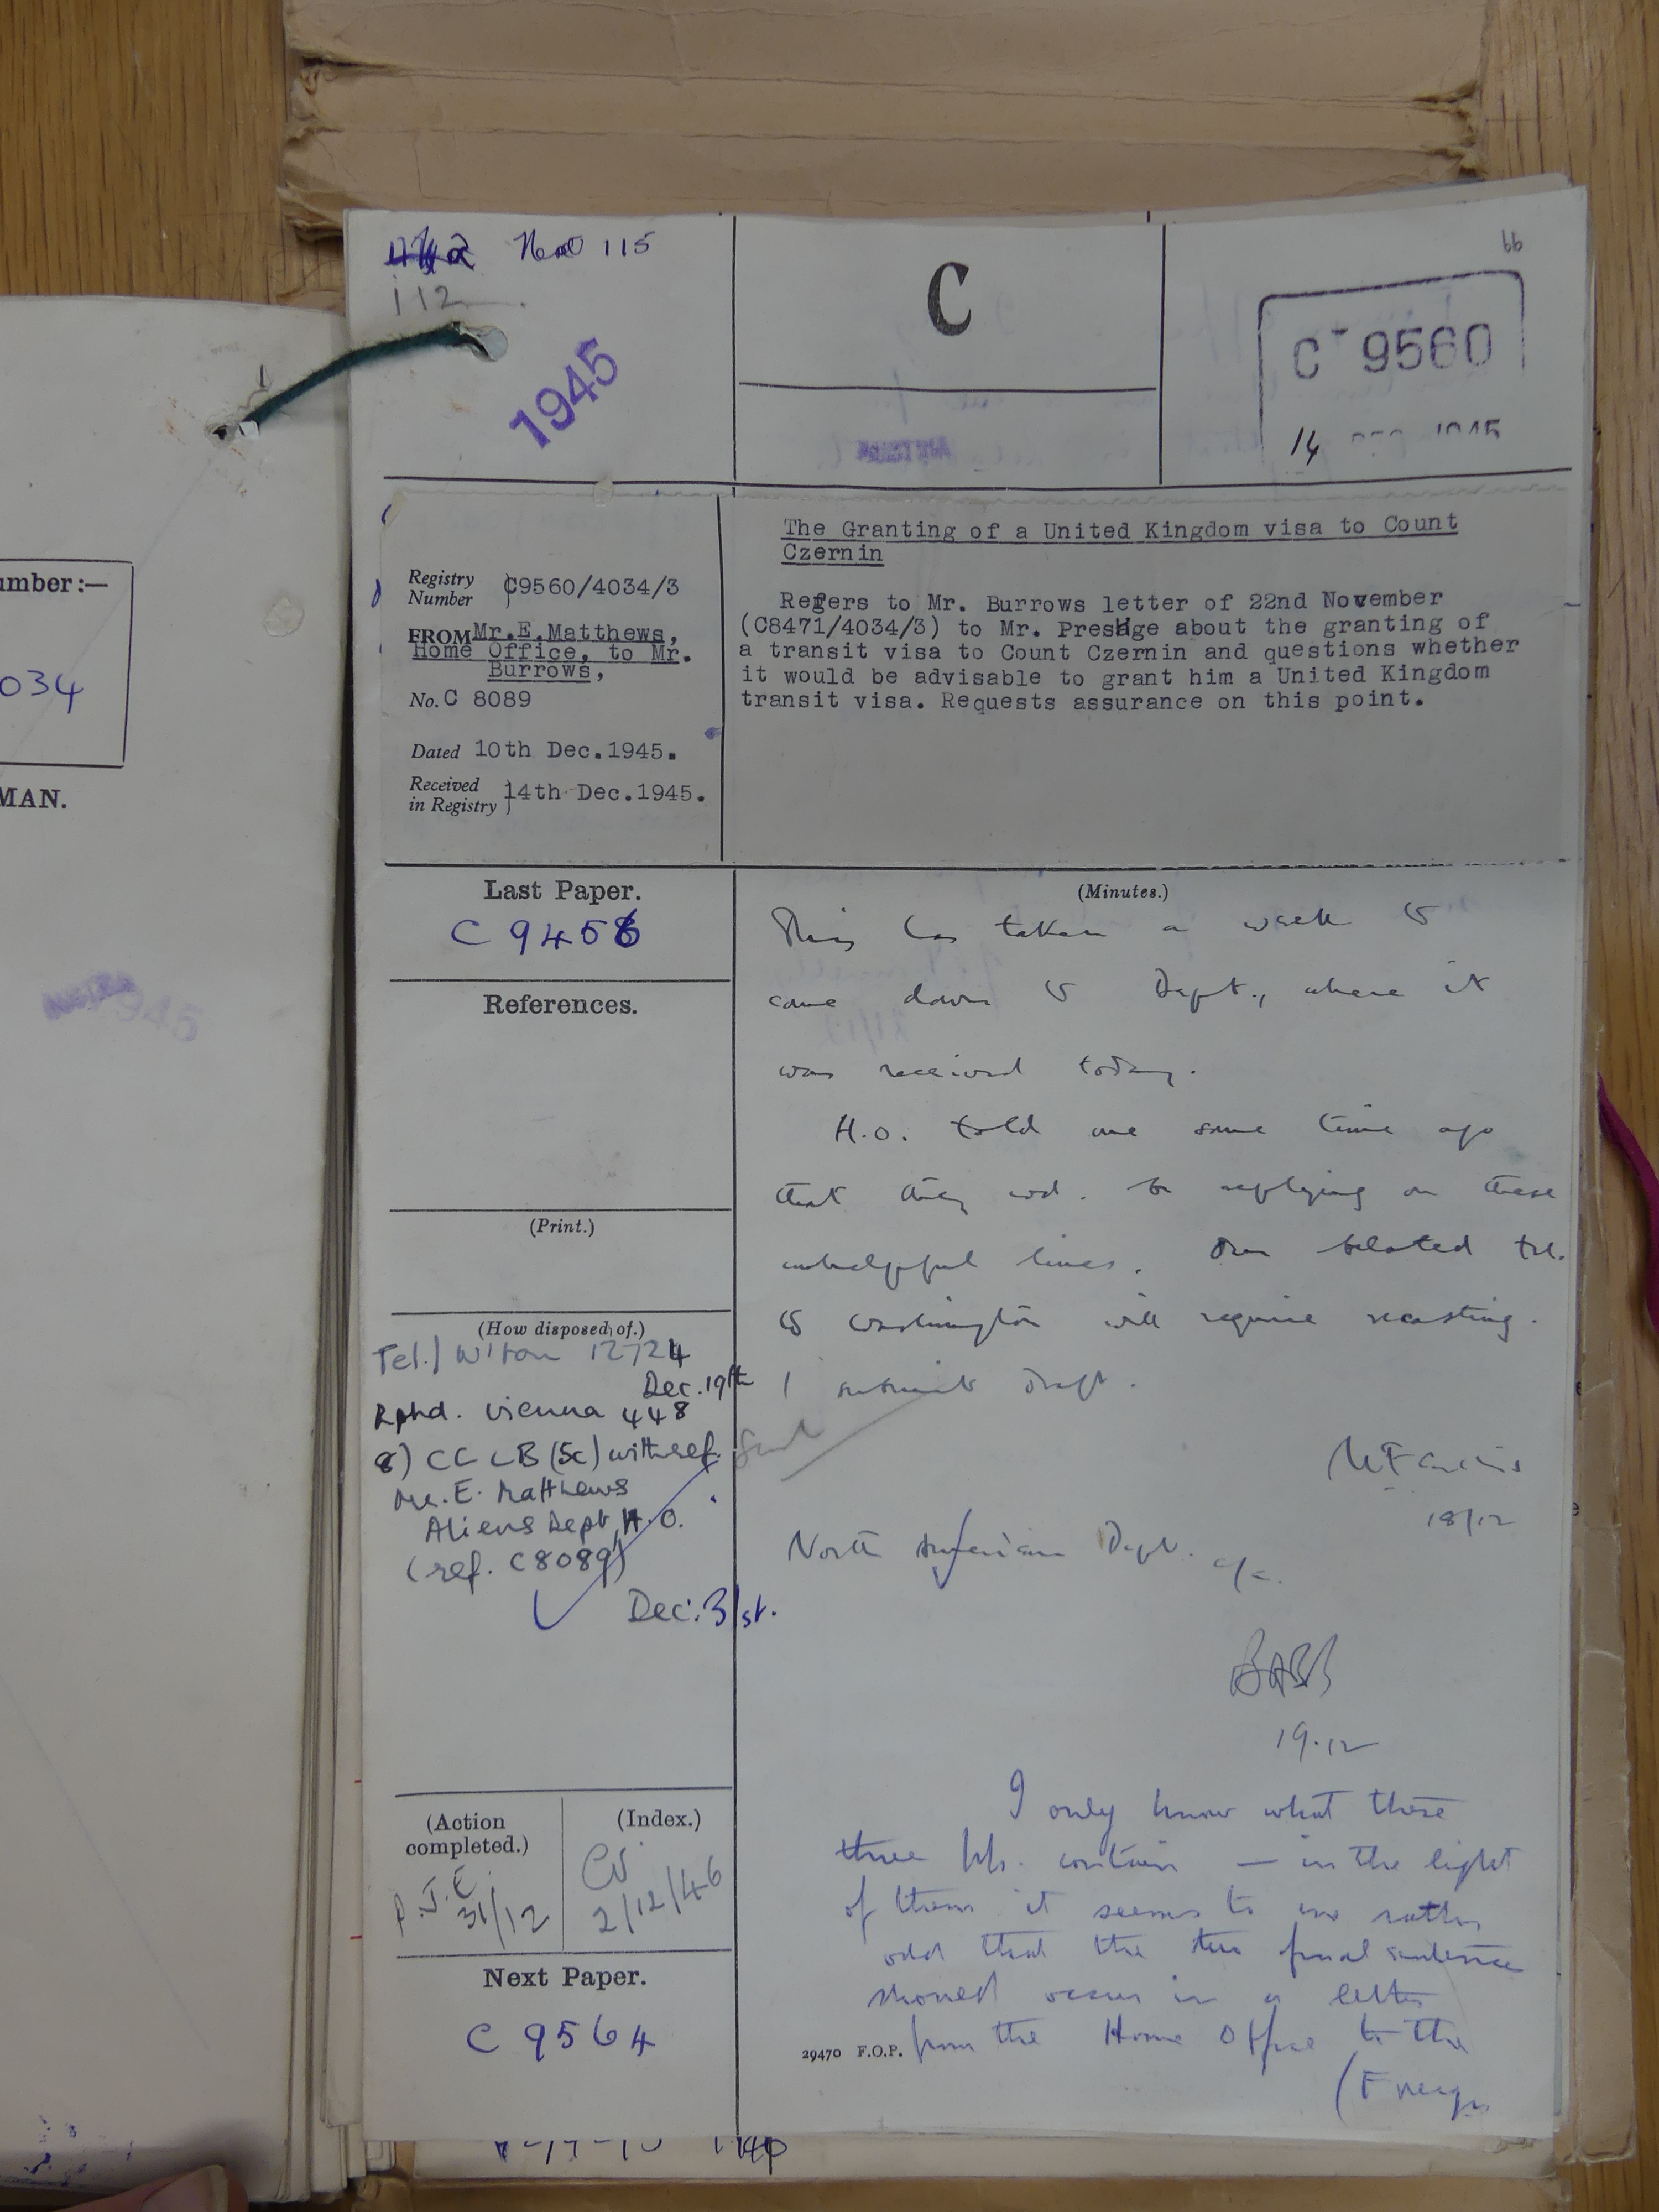 115
112
1945
C
66
C 9560
14 DEC 1945
The Granting of a United Kingdom visa to Count
Czernin
Registry
Number
C9560/4034/3
FROM Mr.E.Matthews,
Home Office, to Mr.
Burrows,
No. C 8089
Dated 10th Dec.1945.
Received
in Registry
14th Dec.1945.
Refers to Mr. Burrows letter of 22nd November
(C8471/4034/3) to Mr. Prestige about the granting of
a transit visa to Count Czernin and questions whether
it would be advisable to grant him a United Kingdom
transit visa. Requests assurance on this point.
umber:—
034
MAN.
945
Last Paper.
C 9456
References.
(Print.)
(How disposed of.)
Tel.) W'ton 12724
Dec. 19th
Rptd. Vienna 448
8) CC LB (5c) with ref.
Mr. E. Matthews
Aliens Dept H.O.
(ref. C8089)
Dec. 31st.
(Action
completed.)
P.J.E.
31/12
(Index.)
2/12/46
Next Paper.
C 9564
(Minutes.)
This has taken a week to
come down to Dept., where it
was received today.
H.O. told me some time ago
that they wd. be replying on these
unhelpful lines. Our belated tel.
to Washington will require recasting.
I submit draft.
18/12
North American Dept.
BABB
19.12
I only know what these
three contain — in the light
of them it seems to me rather
odd that the two final sentences
should occur in a letter
from the Home Office to the
29470 F.O.P.
(Foreign